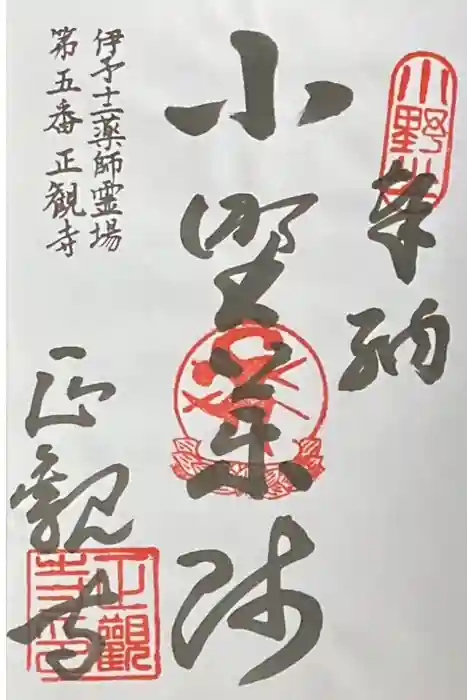 奉納
小野薬師
伊予十二薬師霊場
第五番 正観寺
正觀寺
小野
正觀
寺印